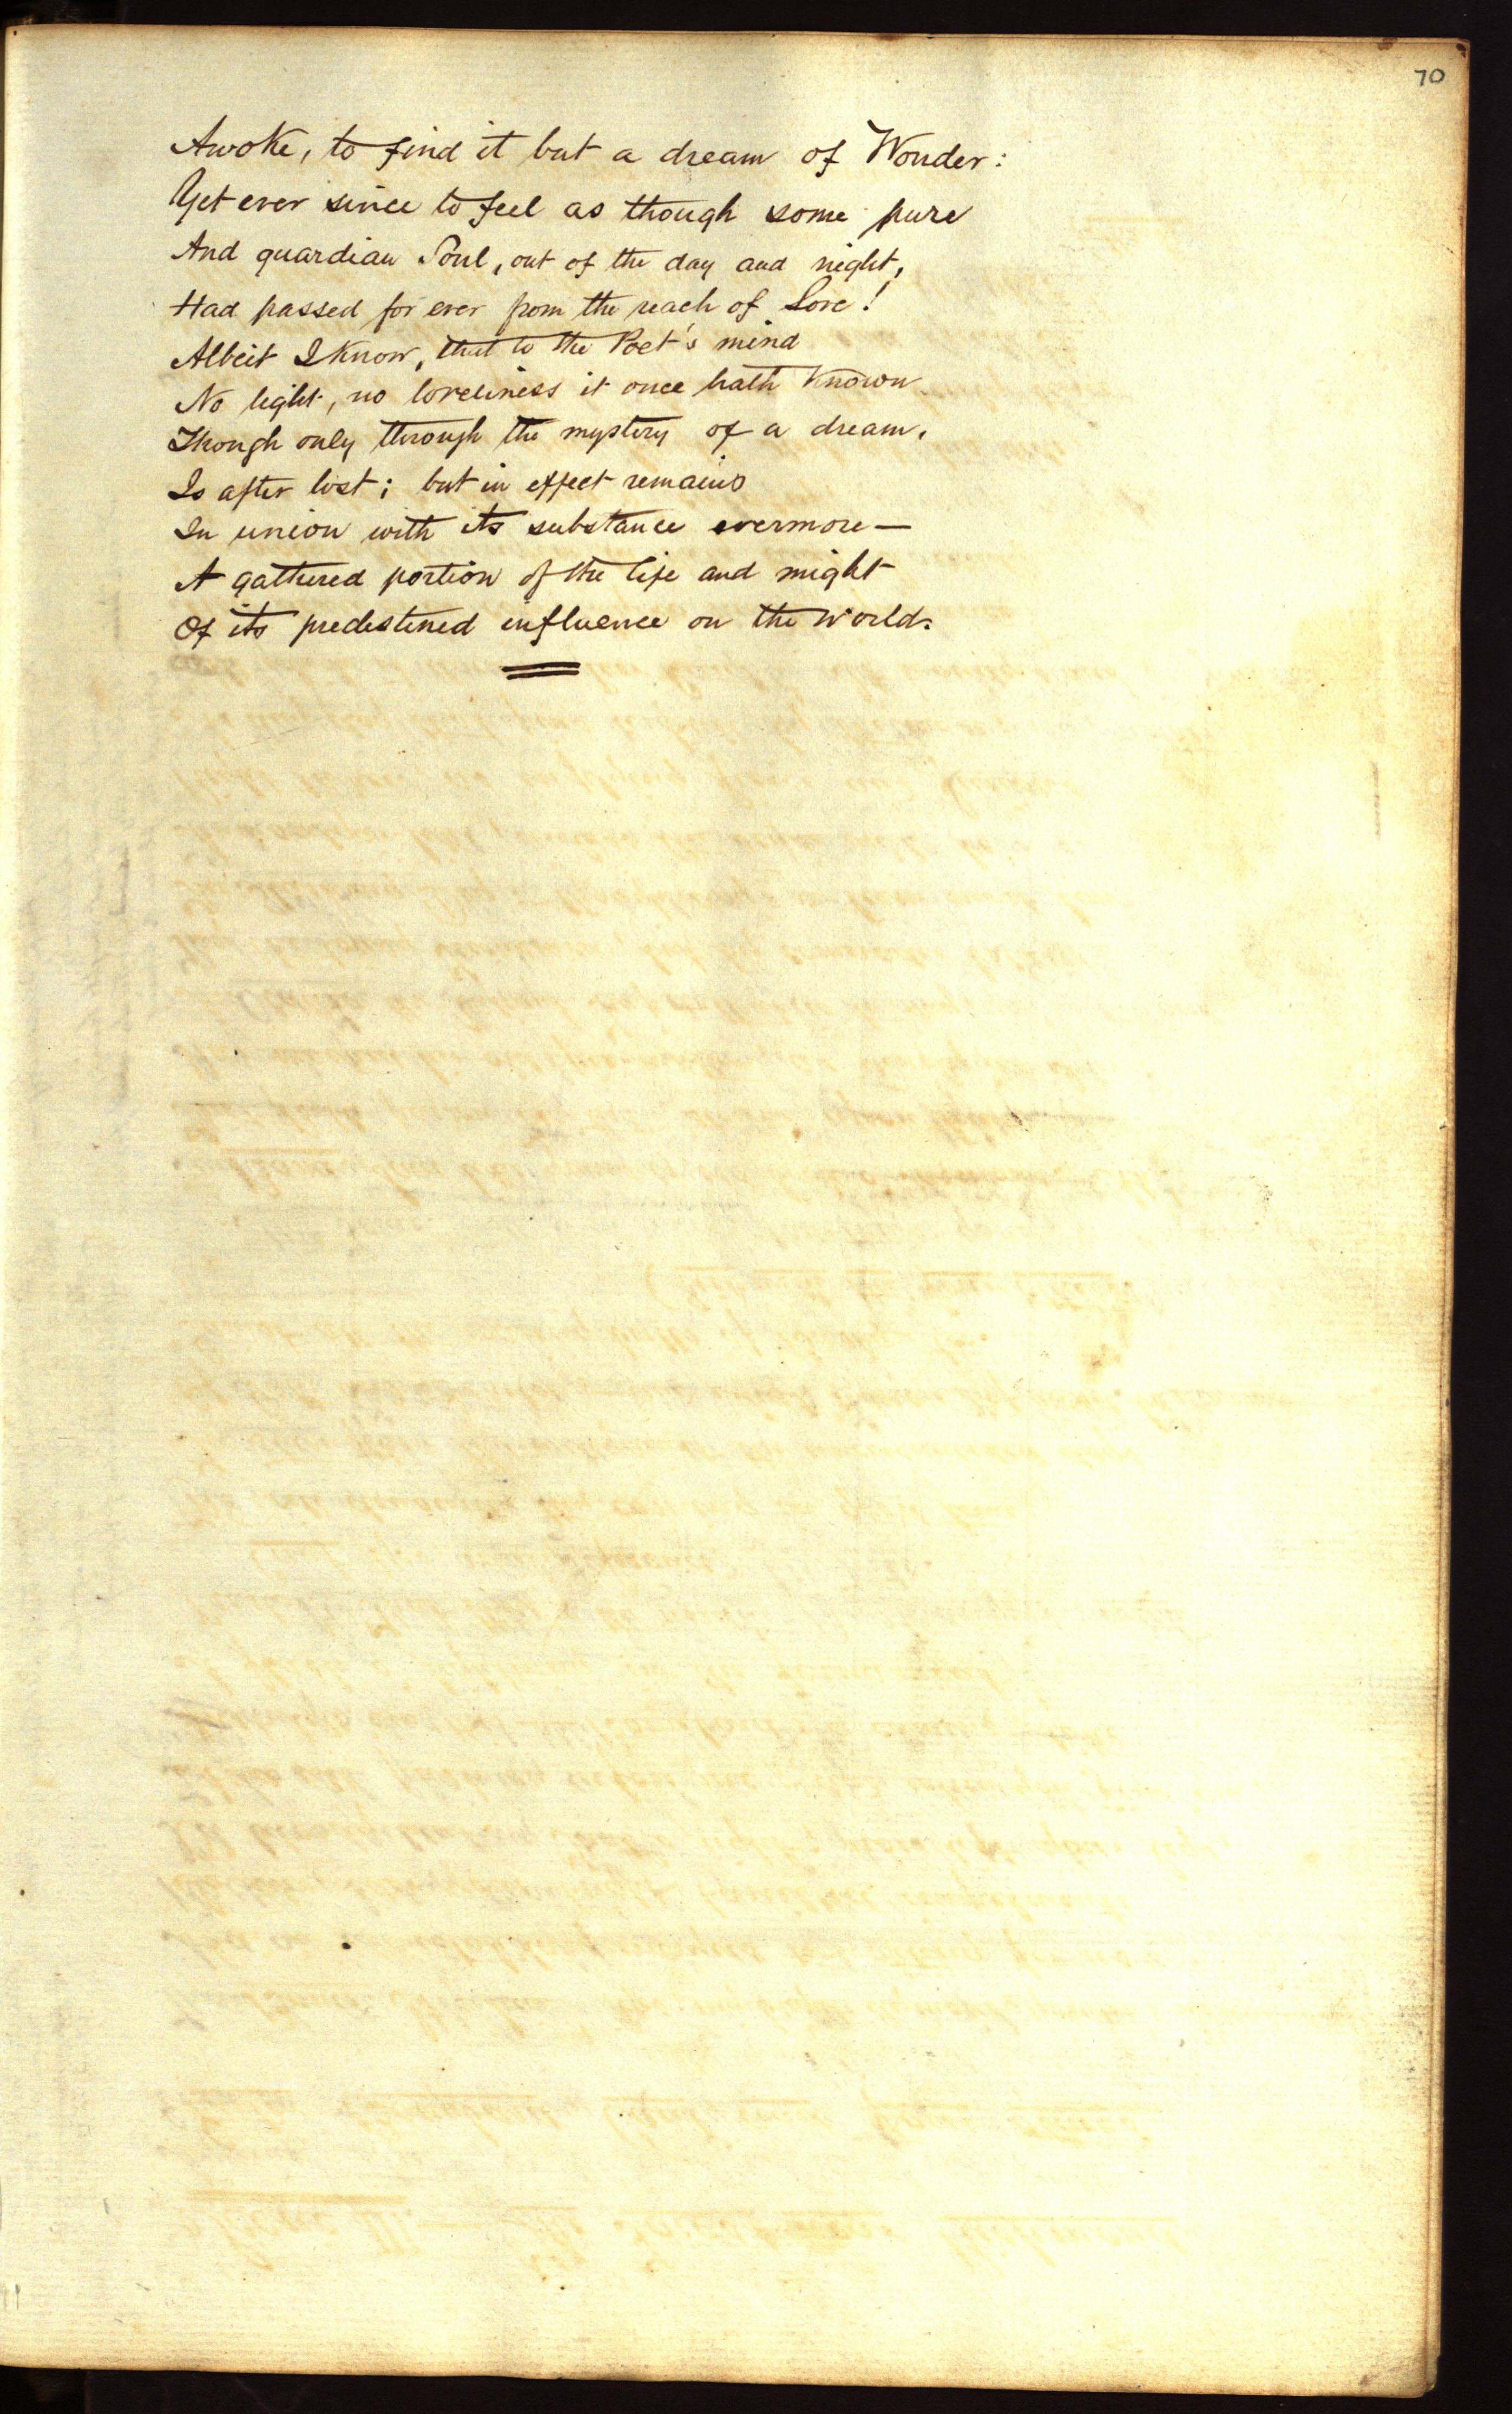 70
Awoke, to find it but a dream of Wonder:
Yet ever since to feel as though some pure
And guardian Soul, out of the day and night,
Had passed for ever from the reach of Love!
Albeit I know, that to the Poet's mind
No light, no loveliness it once hath known
Though only through the mystery of a dream,
Is after lost; but in effect remains
In union with its substance evermore—
A gathered portion of the life and might
Of its predestined influence on the World.